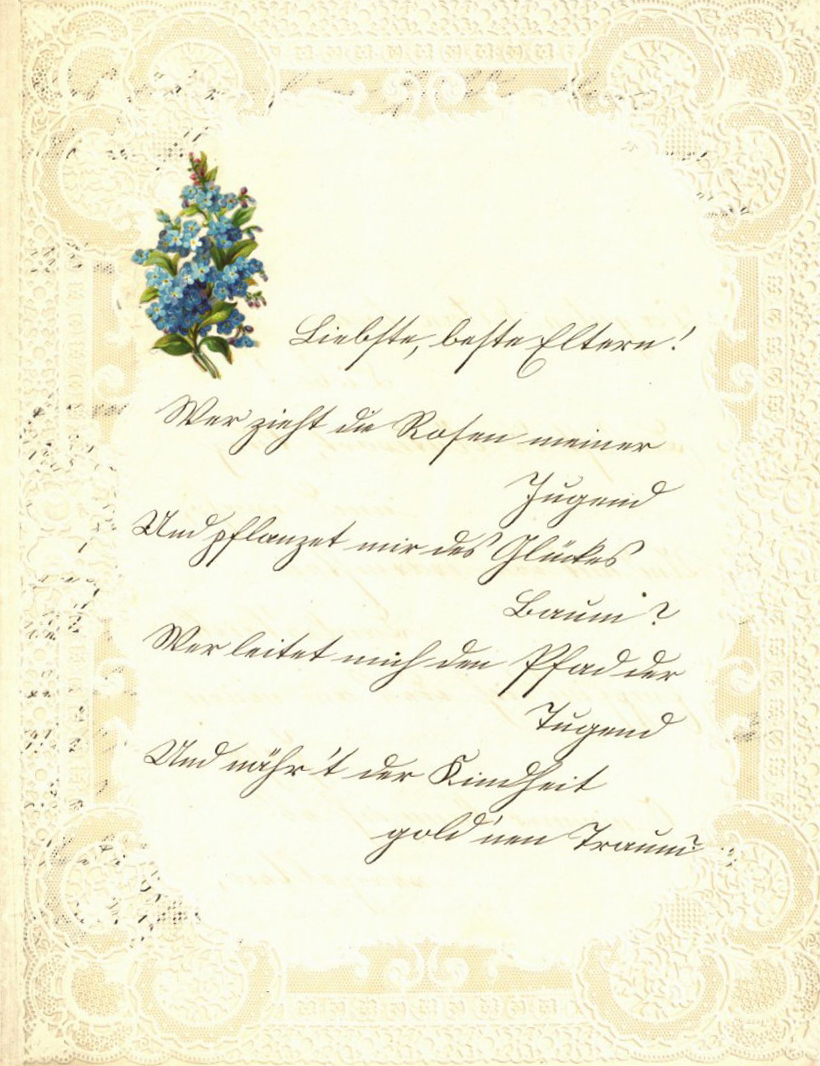 Liebste, beste Eltern!
Wer zieht die Rosen meiner
Jugend
Und pflanzet mir des Glückes
Baum?
Wer leitet mich den Pfad der
Tugend
Und nähr't der Kindheit
gold'nen Traum?